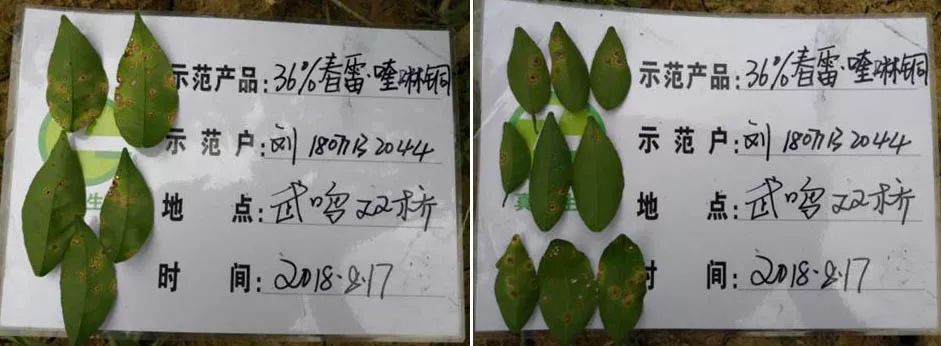 示范产品:36%春雷·喹啉铜
示范户:刘 18077132044
地点:武鸣双桥
时间:2018·8·17
示范产品:36%春雷·喹啉铜
示范户:刘 18077132044
地点:武鸣双桥
时间:2018·8·17